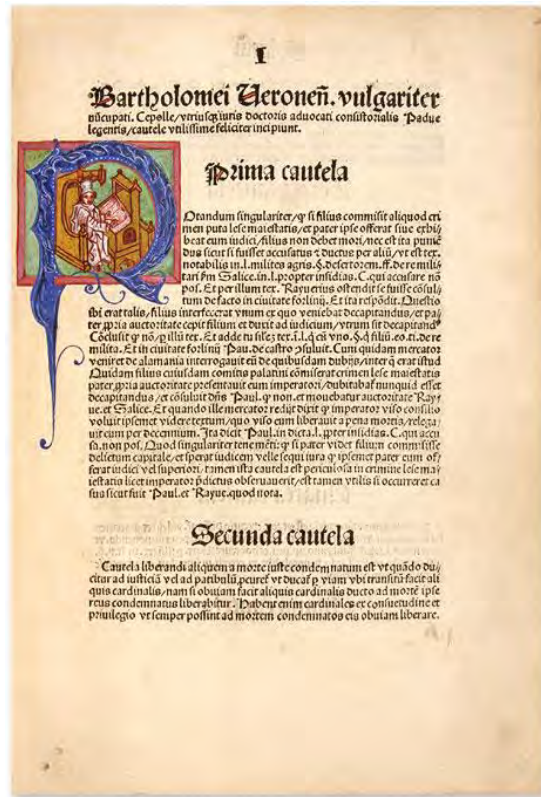 I
Bartholomei Ueroneñ. vulgariter
nũcupati. Cepolle/vtriusqʒ iuris doctoris advocati consistorialis Padue
legentis/cautele vtilissime feliciter incipiunt.
Prima cautela
Otandum singulariter/ꝙ si filius commisit aliquod cri
men puta lese maiestatis/et pater ipse offerat siue exhi/
beat eum iudici/filius non debet mori/nec est ita puniẽ
dus sicut si fuisset accusatus & ductus per aliũ/vt est tex.
notabilis in.l.milites agris.§.desertorem.ff.de re mili/
tari ꝑm Salice.in.l.propter insidias.C.qui accusare nõ
pos. Et per illum tex. Rayuerius ostendit se fuisse cõsul/
tum de facto in ciuitate forliuij. Et ita respõdit. Questio
ibi erat talis/filius interfecerat vnum ex quo veniebat decapitandus/et pa/
ter ꝓpria auctoritate cepit filium et duxit ad iudicium/vtrum sit decapitandꝰ
Cõclusit ꝙ nõ/ꝑ illũ tex. Et adde tu silez tex.ĩ.l.q̃ ci vno.§.q̃ filiũ.eo.ti.de re
milita. Et in ciuitate forliuij Pau.de castro ɔsuluit. Cum quidam mercator
veniret de alamania interrogauit eũ de quibusdam dubijs/inter q̃ erat istud
Quidam filius cuiusdam comitis palatini cõmiserat crimen lese maiestatis
pater ꝓpria auctoritate presentauit eum imperatori/dubitabaṫ nunquid esset
decapitandus/et cõsuluit dñs Paul.ꝙ non.et mouebatur auctoritate Ray/
ue.et Salice. Et quando ille mercator redijt dixit ꝙ imperator viso consilio
voluit ipsemet videre textum/quo viso eum liberauit a pena mortis/relega/
uit eum per decennium. Ita dicit Paul.in dicta.l.ꝓpter insidias.C.qui accu
sa.non pos. Quod singulariter tene mẽti: ꝙ si pater videt filium commisisse
delictum capitale/et sperat iudicem velle sequi iura ꝙ ipsemet pater eum of/
ferat iudici vel superiori/tamen ista cautela est periculosa in crimine lese ma/
iestatis licet imperator ꝓdictus obseruauerit/est tamen vtilis si occurreret ca
sus sicut fuit Paul.et Rayue.quod nota.
Secunda cautela
Cautela liberandi aliquem a morte iuste condemnatum est vt quãdo du/
citur ad iusticiã vel ad patibulũ ꝓcureṫ vt ducaṫ ꝑ viam vbi transitũ facit ali
quis cardinalis/nam si obuiam facit aliquis cardinalis ducto ad mortẽ ipse
reus condemnatus liberabitur. Habent enim cardinales ex consuetudine et
priuilegio vt semper possint ad mortem condemnatos eis obuiam liberare.